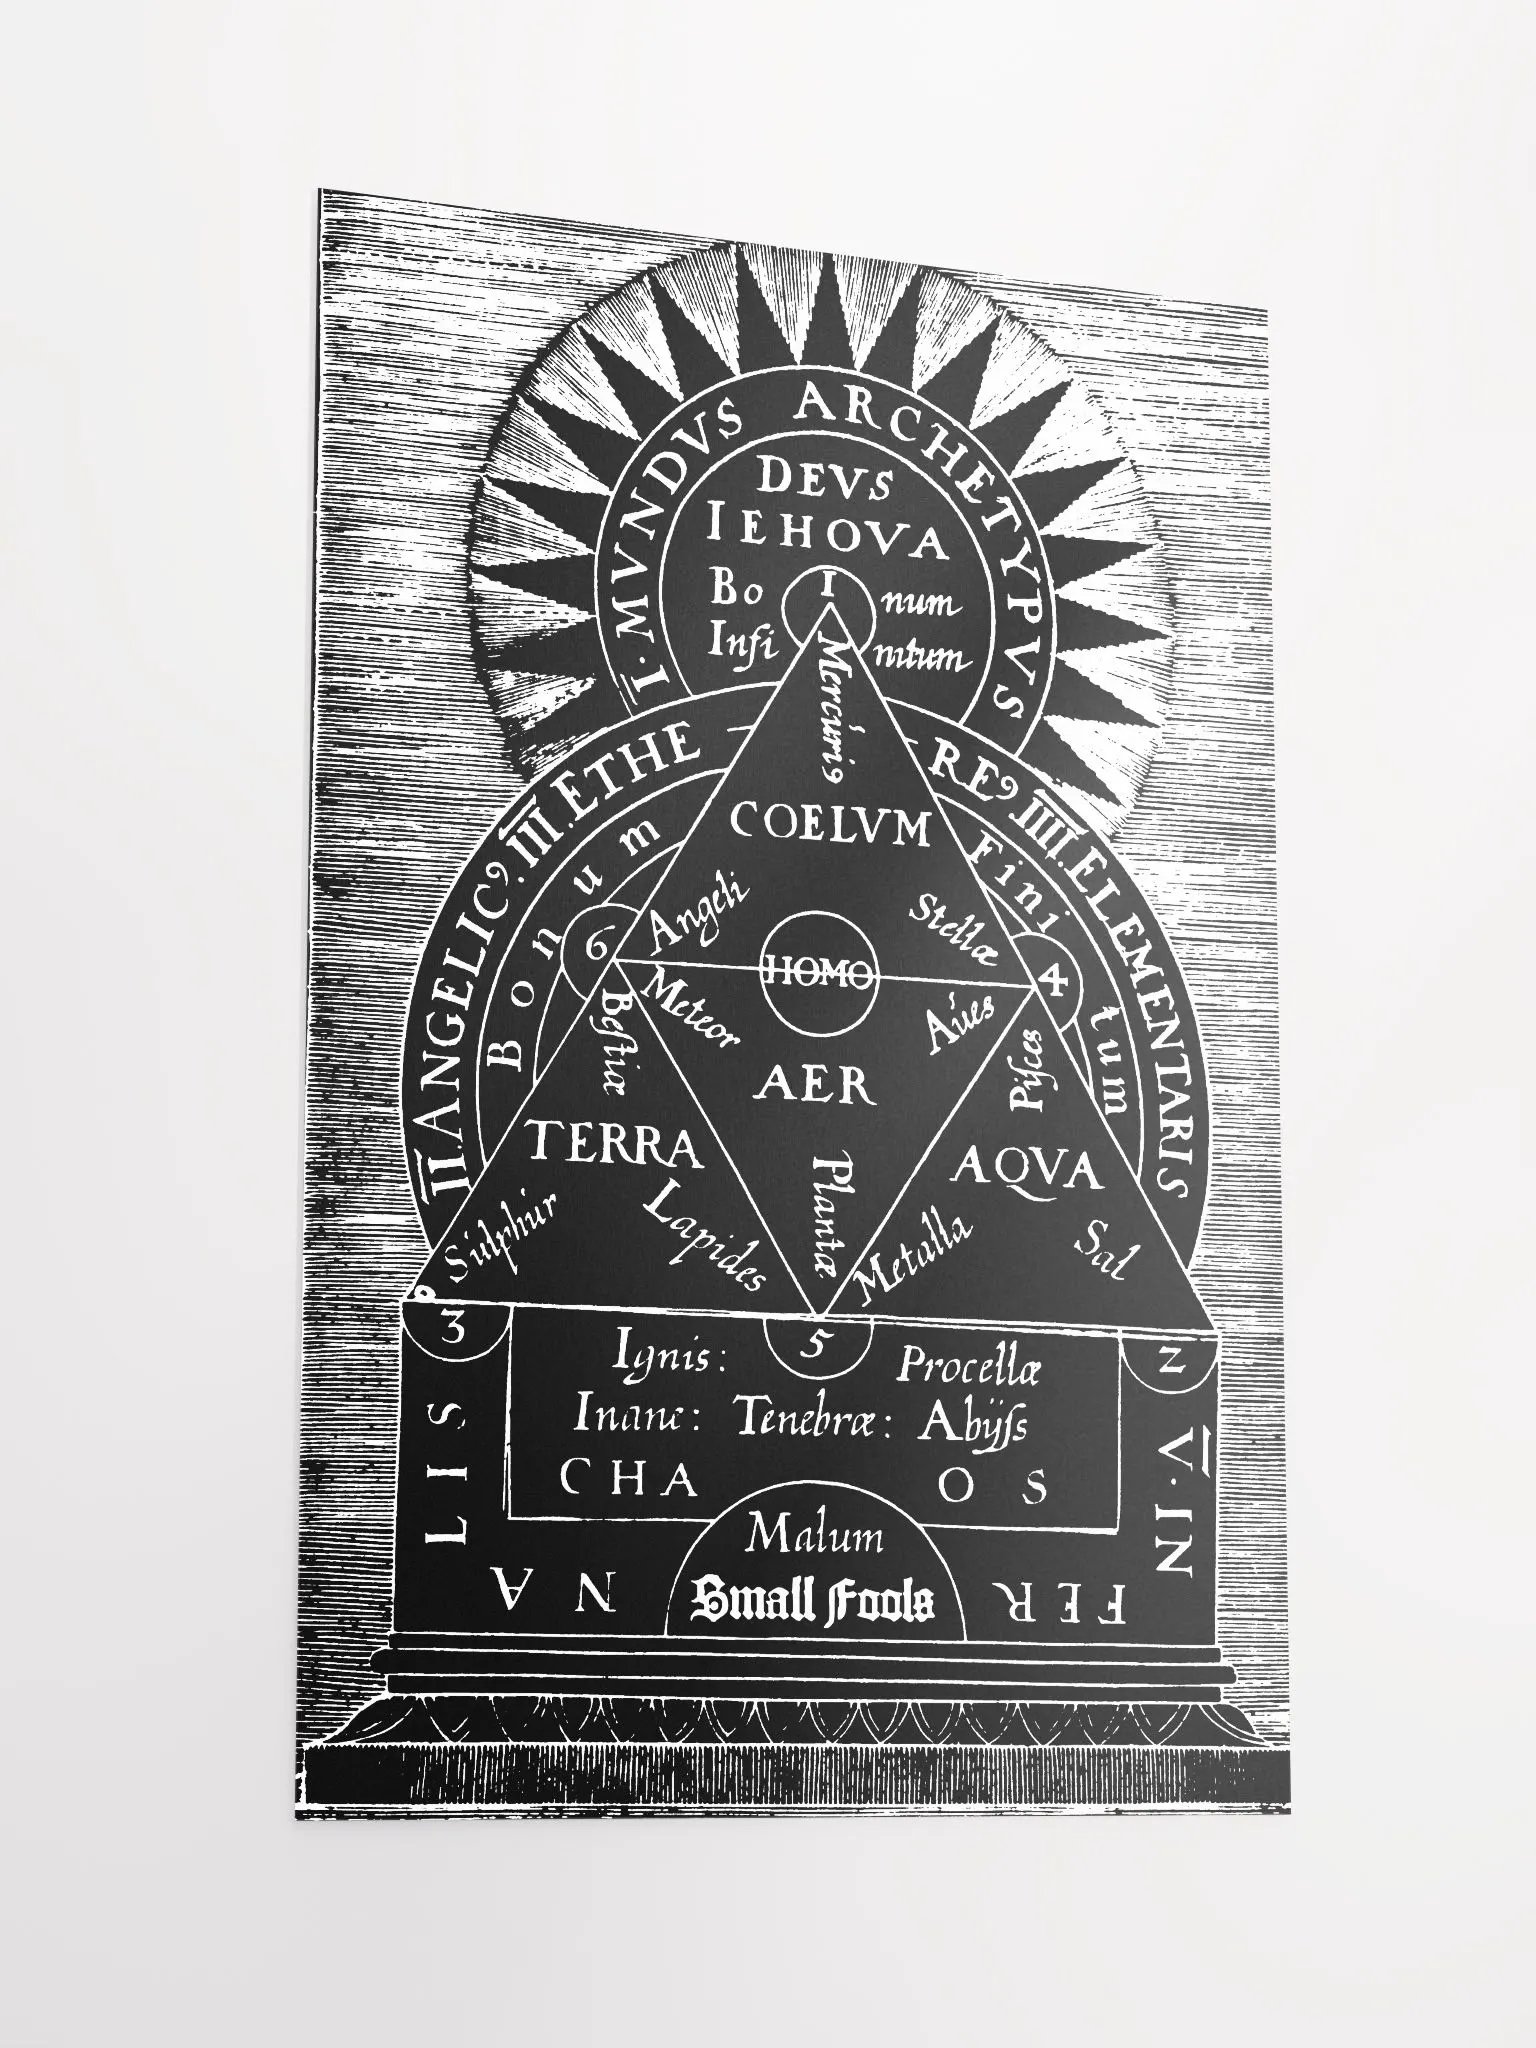 I. MVNDVS ARCHETYPVS
DEVS
IEHOVA
Bo I num
Infi nitum
Mercuri9
II ANGELIC9. III ETHE RE9 IIII. ELEMENTARIS
Bonum
Finitum
COELVM
Angeli
Stellæ
6
HOMO
4
Meteor
Aues
Bestiæ
Pisces
AER
TERRA
AQVA
Plantæ
Sulphur
Lapides
Metalla
Sal
3
5
2
Ignis: Procellæ
Inane: Tenebræ: Abÿss
CHA OS
V. IN FER NA LIS
Malum
Small Fools